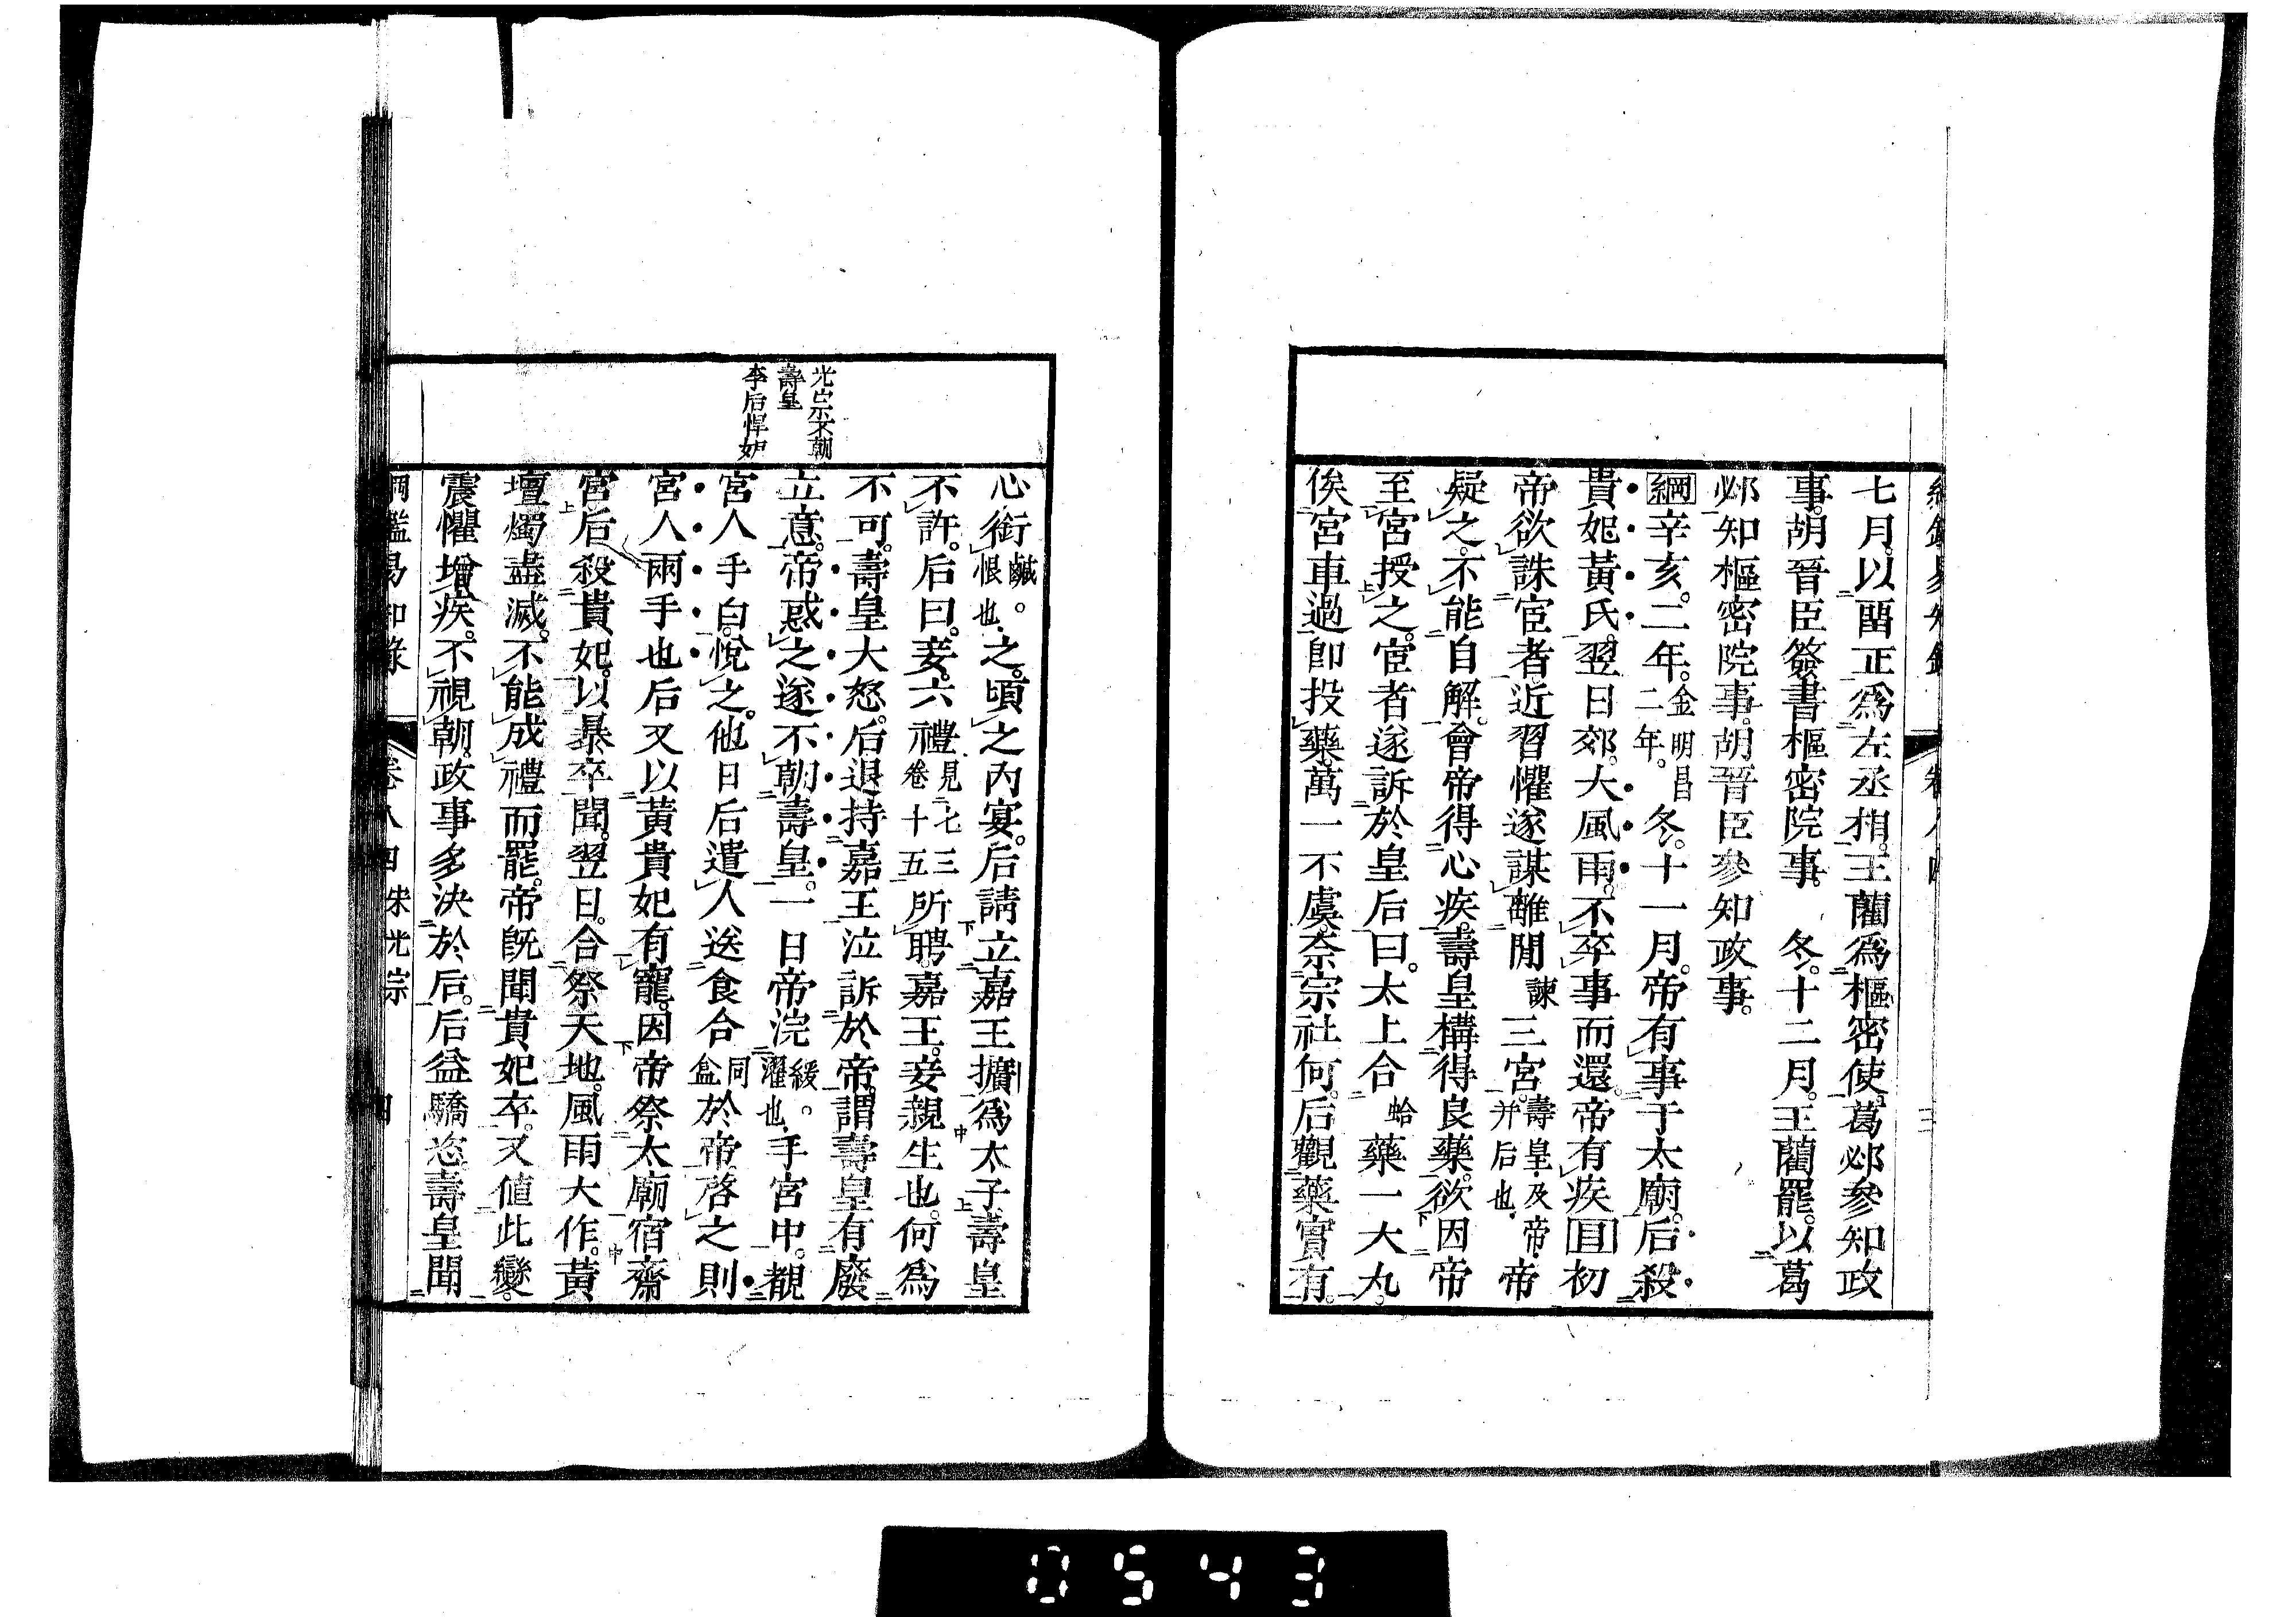 七月。以留正爲左丞相。王藺爲樞密使。葛邲參知政
事。胡晉臣簽書樞密院事。 冬。十二月。王藺罷。以葛
邲知樞密院事。胡晉臣參知政事。
綱辛亥。二年。金明昌二年。冬。十一月。帝有事于太廟。后殺
貴妃黃氏。翌日郊。大風雨。不卒事而還。帝有疾目初
帝欲誅宦者。近習懼。遂謀離間諫三宮。壽皇及帝帝并后也。帝
疑之。不能自解。會帝得心疾。壽皇構得良藥。欲因帝
至宮授之。宦者遂訴於皇后曰。太上合蛤藥一大丸。
俟宮車過卽投藥。萬一不虞。奈宗社何。后觀藥實有。
光宗不朝
壽皇
李后悍妒
心銜鹹。恨也。之。頃之內宴。后請立嘉王擴爲太子。壽皇
不許。后曰。妾六禮見七三卷十五所聘。嘉王。妾親生也。何爲
不可。壽皇大怒。后退持嘉王泣訴於帝。謂壽皇有廢
立意。帝惑之。遂不朝壽皇。一日帝浣緩。濯也。手宮中。覩
宮人手白。悅之。他日后遣人送食合同盒於帝。啓之則
宮人兩手也后又以黃貴妃有寵。因帝祭太廟宿齋
宮后殺貴妃。以暴卒聞。翌日。合祭天地。風雨大作。黃
壇燭盡滅。不能成禮而罷。帝旣聞貴妃卒。又値此變。
震懼增疾。不視朝。政事多決於后。后益驕恣壽皇聞
綱鑑易知錄 卷八四 宋光宗 四
0543